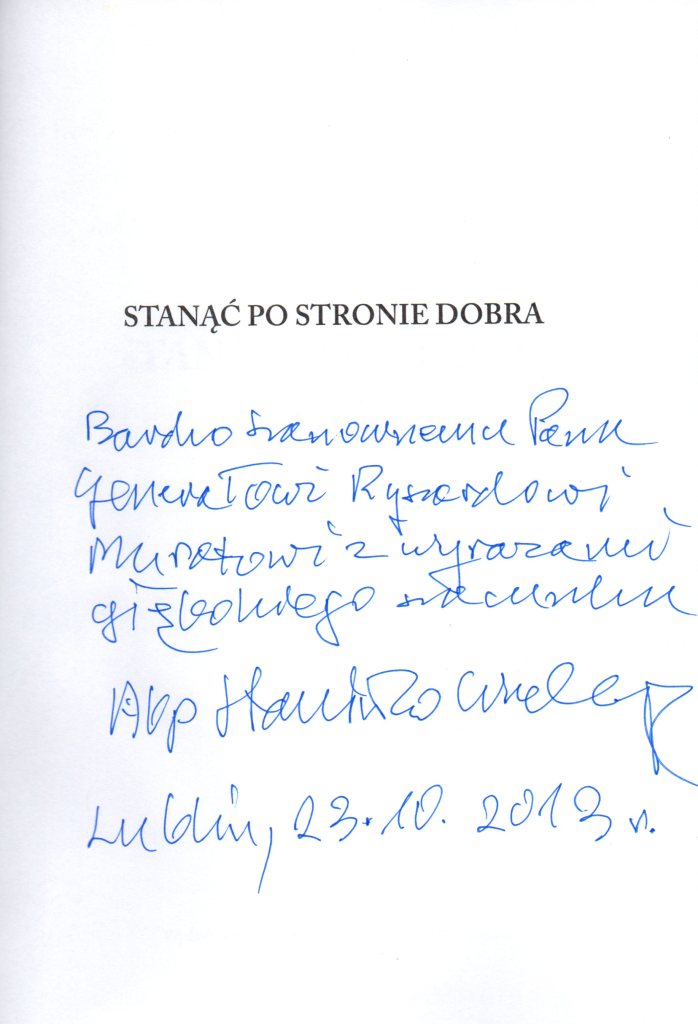 STANĄĆ PO STRONIE DOBRA
Bardzo Szanownemu Panu
Generałowi Ryszardowi
Muratowi z wyrazami
głębokiego szacunku
Abp Stanisław Wielgus
Lublin, 23.10.2013 r.